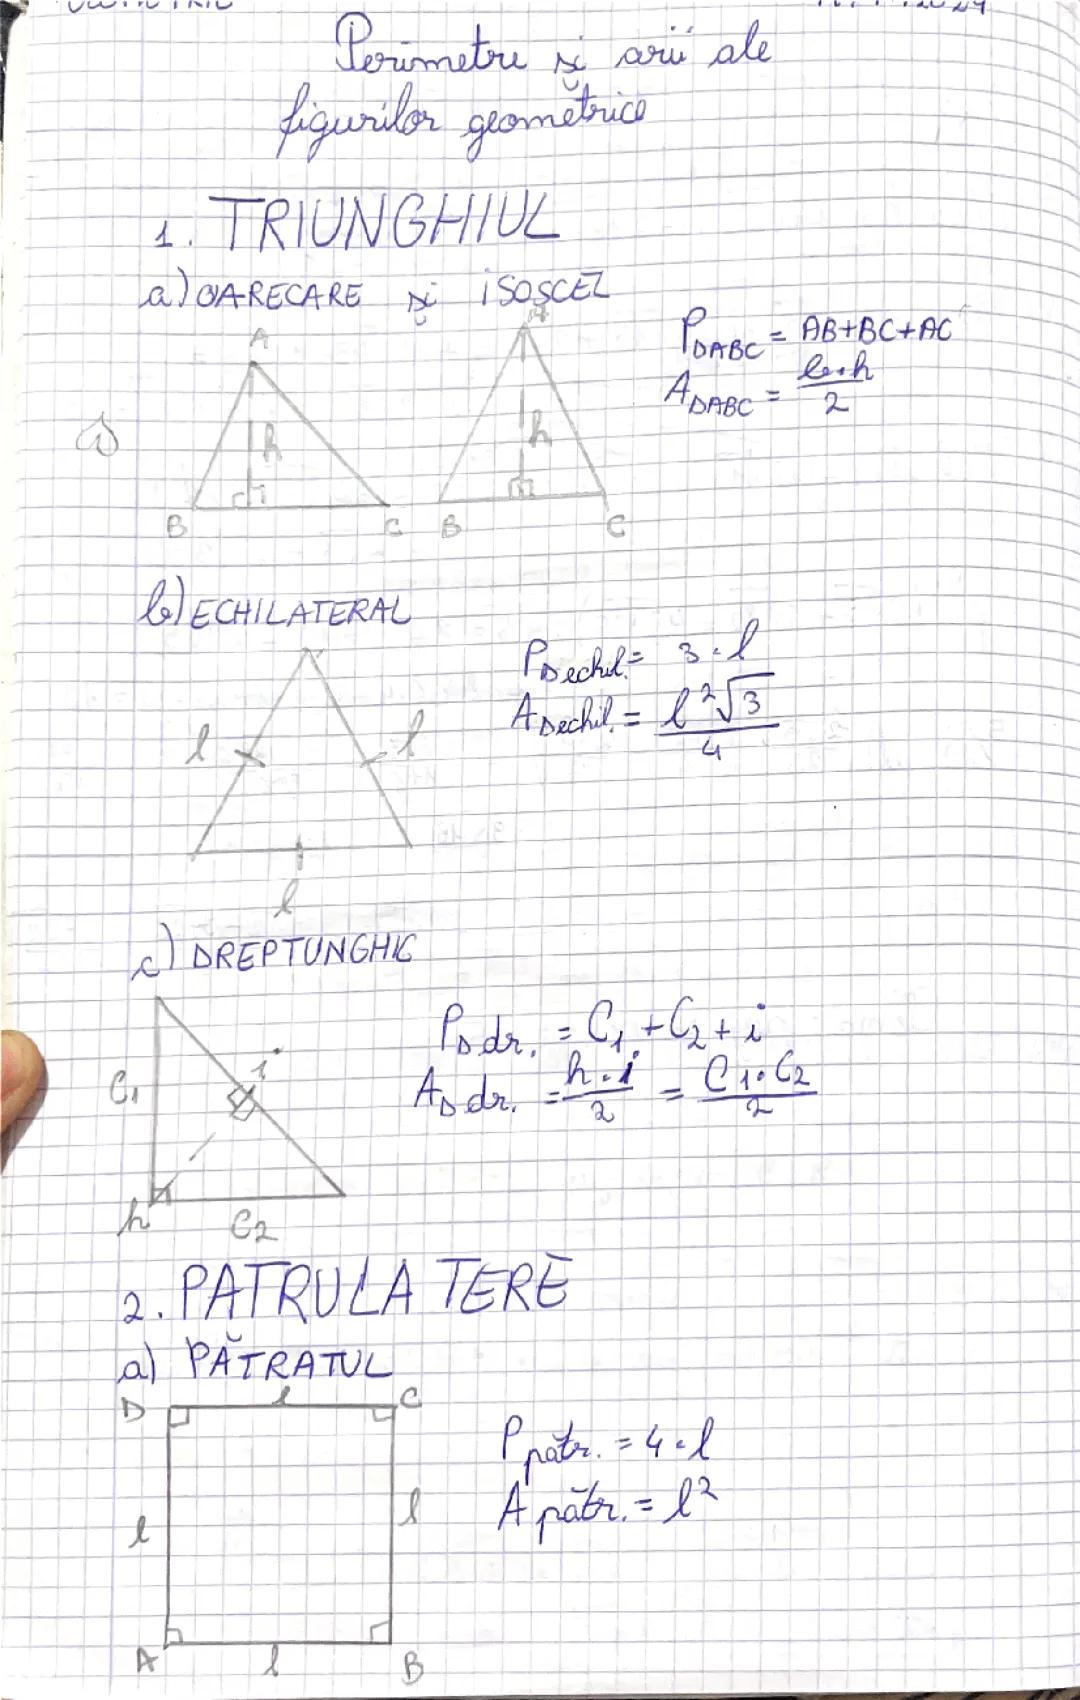 Perimetre și arii ale
figurilor geometrice
1. TRIUNGHIUL
a) OARECARE și ISOSCEL
A A
P∆ABC = AB+BC+AC
A∆ABC = b·h/2
h h
B C B C
b) ECHILATERAL
P∆echil. = 3·l
A∆echil. = l²√3/4
l l
l
c) DREPTUNGHIC
P∆dr. = C₁+C₂+i
A∆dr. = h·i/2 = C₁·C₂/2
C₁ i
h C2
2. PATRULATERE
a) PĂTRATUL
D l C
P pătr. = 4·l
A pătr. = l²
l l
A l B